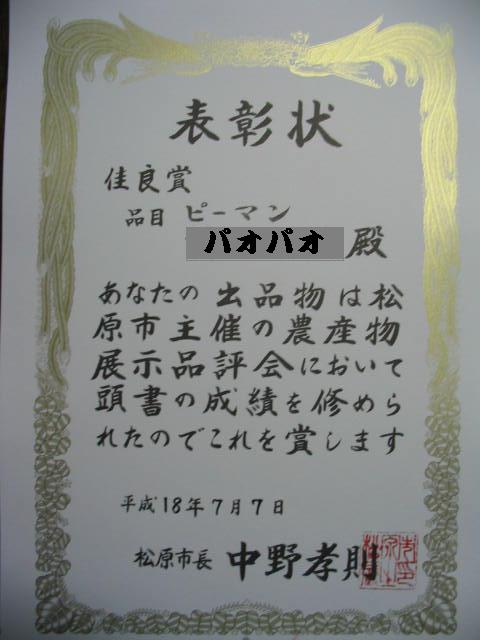 表彰状
佳良賞
品目 ピーマン
パオパオ 殿
あなたの出品物は松
原市主催の農産物
展示品評会において
頭書の成績を修めら
れたのでこれを賞します
平成18年7月7日
松原市長 中野孝則